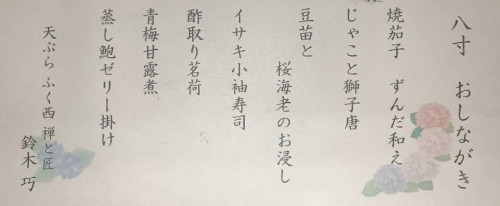 八寸 おしながき
焼茄子 ずんだ和え
じゃこと獅子唐
豆苗と
桜海老のお浸し
イサキ小袖寿司
酢取り茗荷
青梅甘露煮
蒸し鮑ゼリー掛け
天ぷら ふく西 禅と匠
鈴木 巧